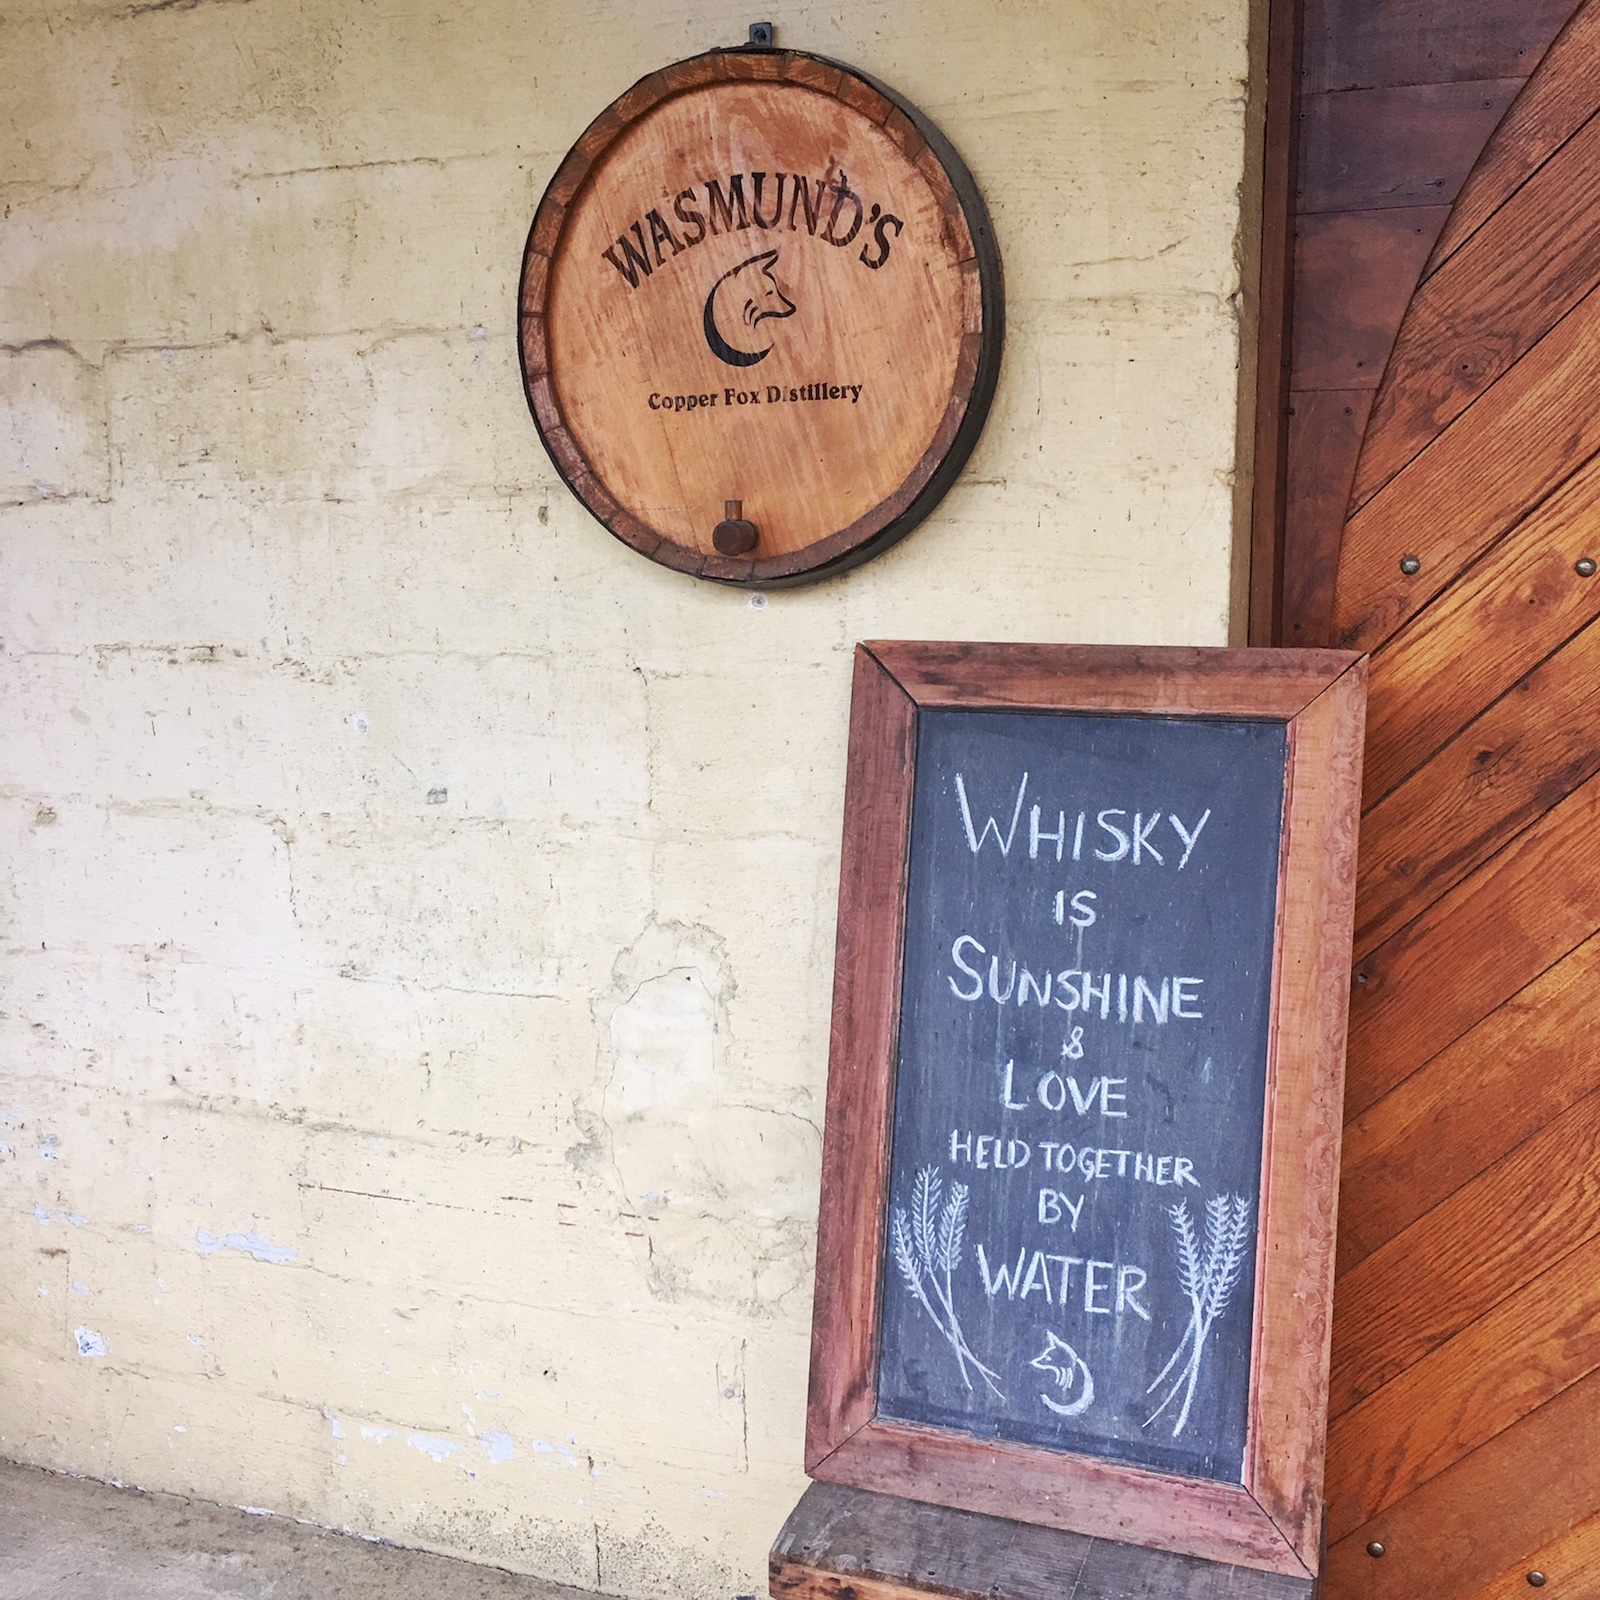 WASMUND'S
Copper Fox Distillery
WHISKY
IS
SUNSHINE
&
LOVE
HELD TOGETHER
BY
WATER